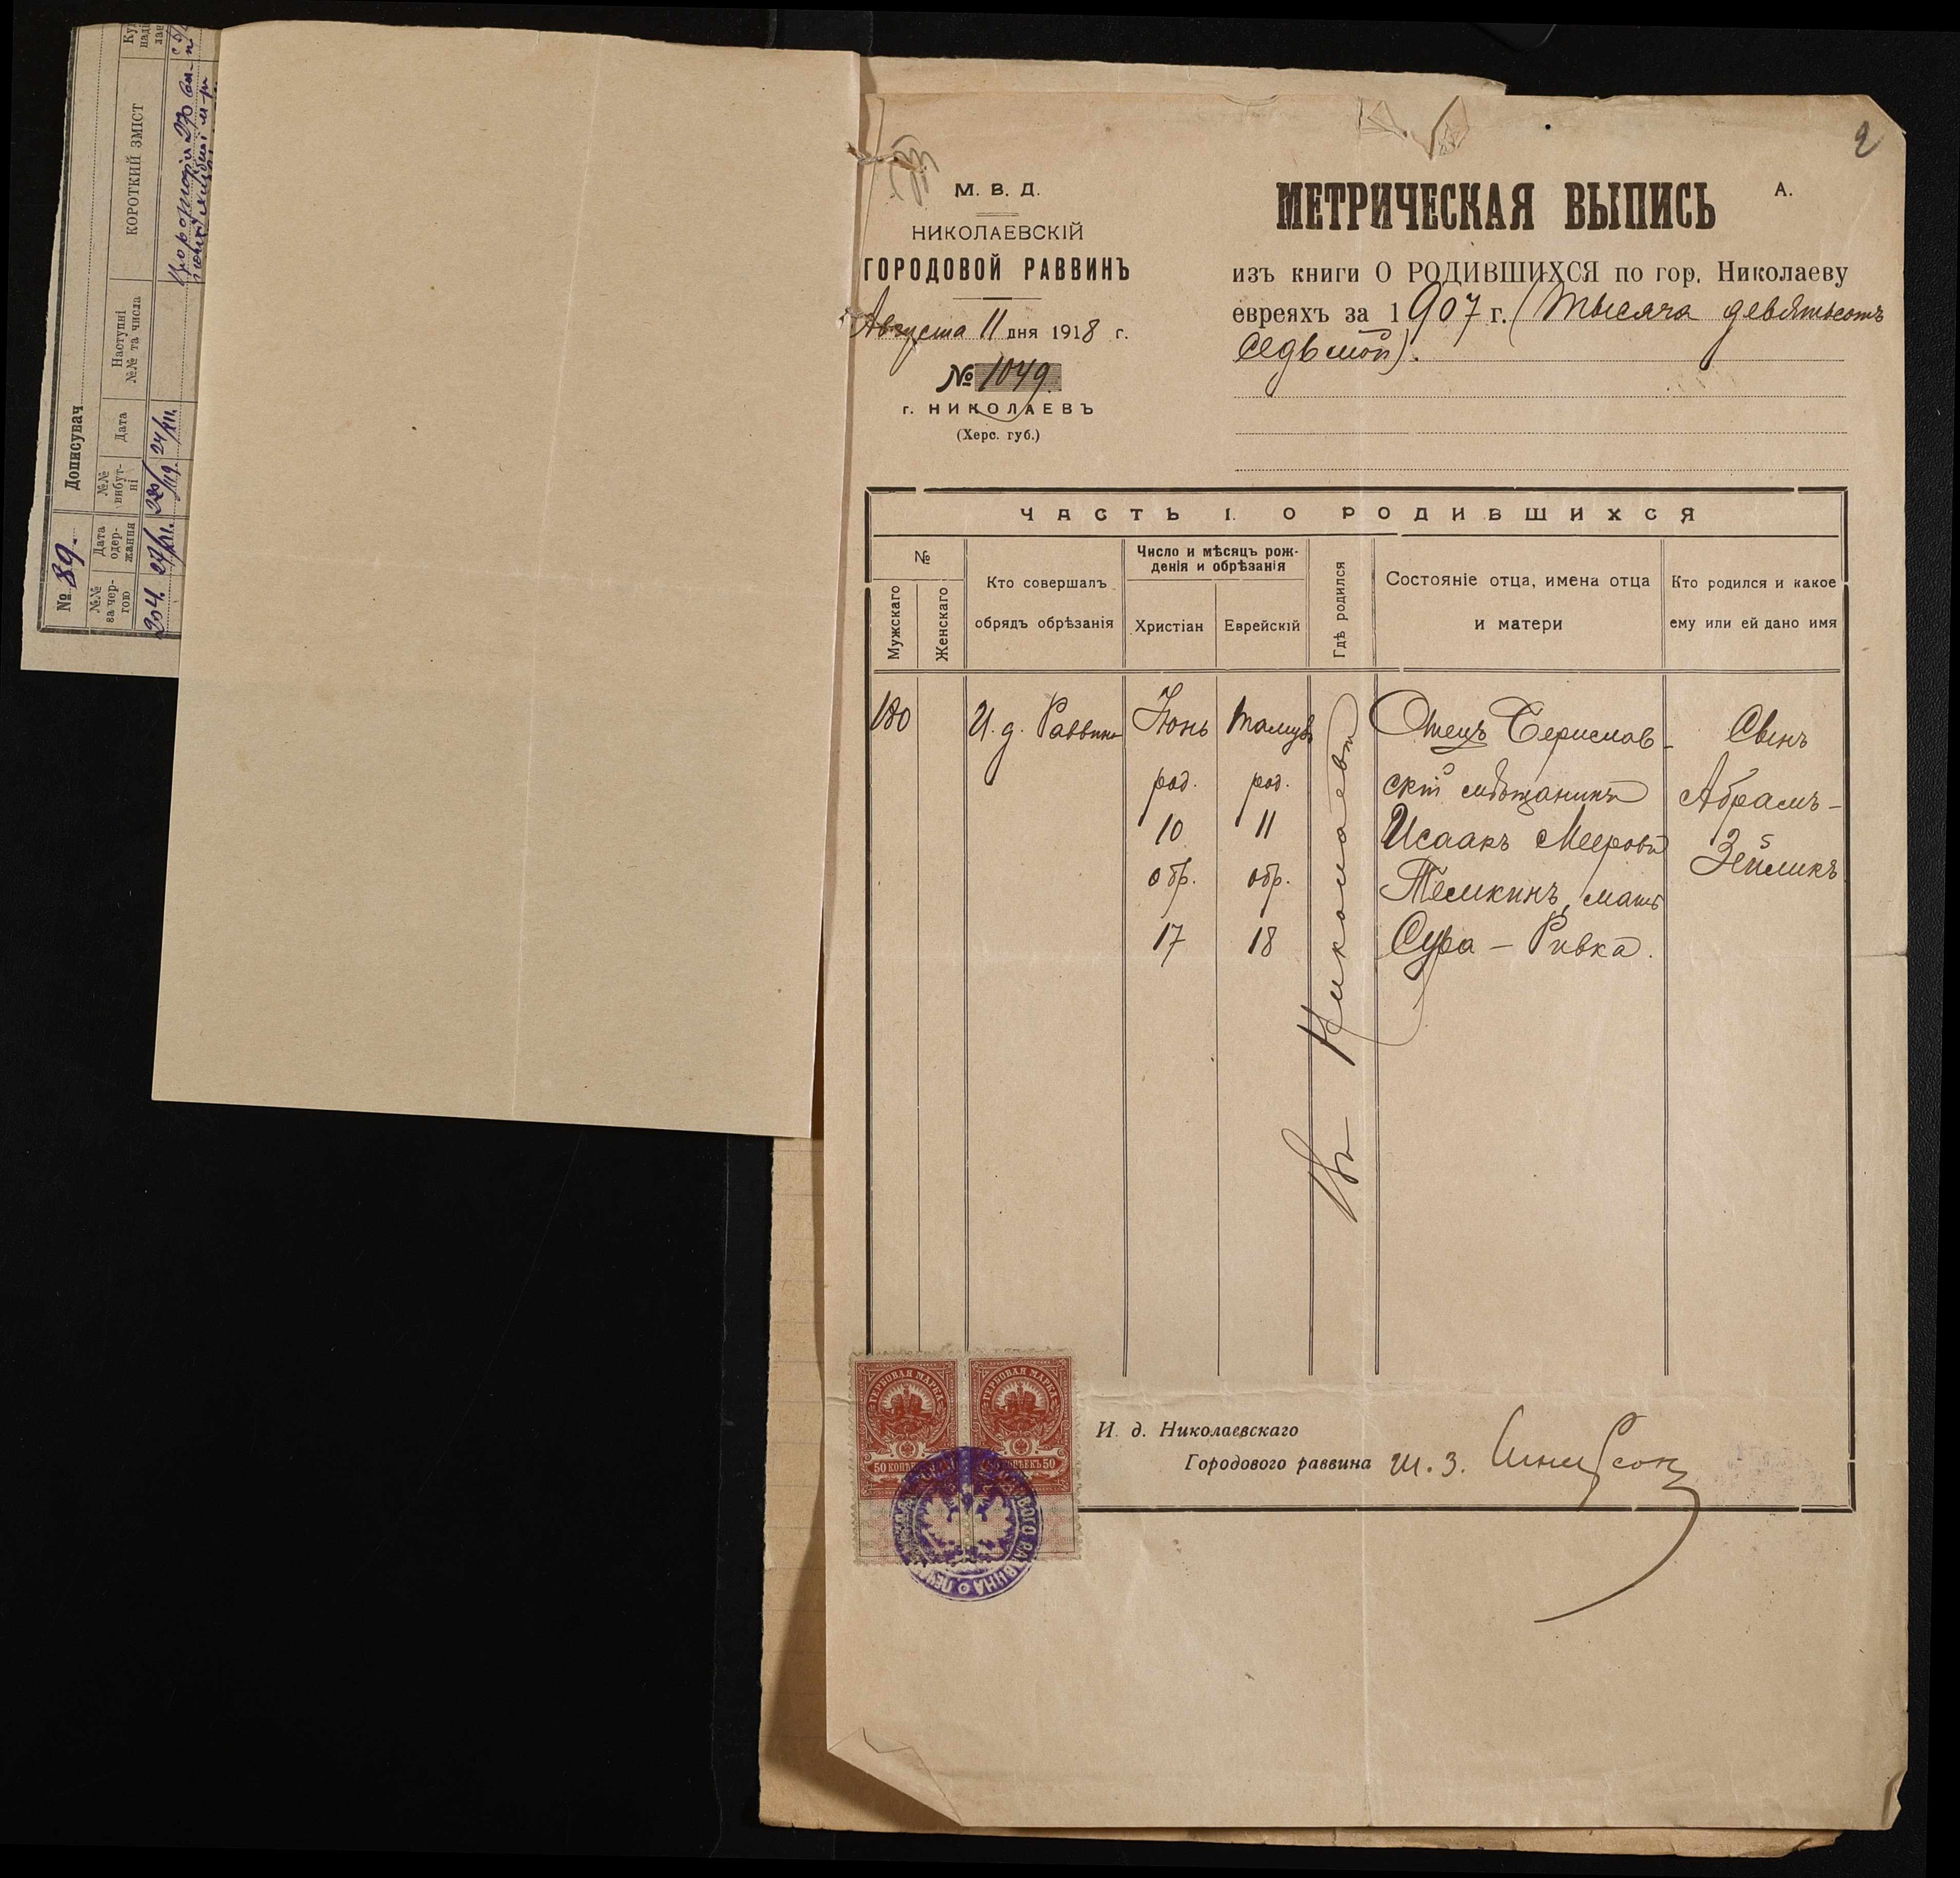 № 89.
Дописувач
№№ за чергою
Дата одержання
№№ вибутні
Дата
Наступні №№ та числа
КОРОТКИЙ ЗМІСТ
204.
27/XII.
24/XII.
2
М. В. Д.
НИКОЛАЕВСКІЙ
ГОРОДОВОЙ РАВВИНЪ
Августа 11 дня 1918 г.
№ 1049.
г. НИКОЛАЕВЪ
(Херс. губ.)
МЕТРИЧЕСКАЯ ВЫПИСЬ
А.
изъ книги О РОДИВШИХСЯ по гор. Николаеву
евреяхъ за 1907 г. (тысяча девятьсотъ
седьмой).
ЧАСТЬ I. О РОДИВШИХСЯ
№
Мужскаго
Женскаго
Кто совершалъ
обрядъ обрѣзанія
Число и мѣсяцъ рож-
денія и обрѣзанія
Христіан
Еврейскій
Гдѣ родился
Состояніе отца, имена отца
и матери
Кто родился и какое
ему или ей дано имя
180
И. д. Раввина
Іюнь
род.
10
обр.
17
Тамузъ
род.
11
обр.
18
Въ Николаевѣ
Отецъ Берислав-
скій мѣщанинъ
Исаакъ Мееровъ
Темкинъ, мать
Сура - Ривка.
Сынъ
Абрамъ -
Зейликъ
ГЕРБОВАЯ МАРКА
50 КОПѢЕКЪ
ГЕРБОВАЯ МАРКА
КОПѢЕКЪ 50
И. д. Николаевскаго
Городового раввина Ш. З.